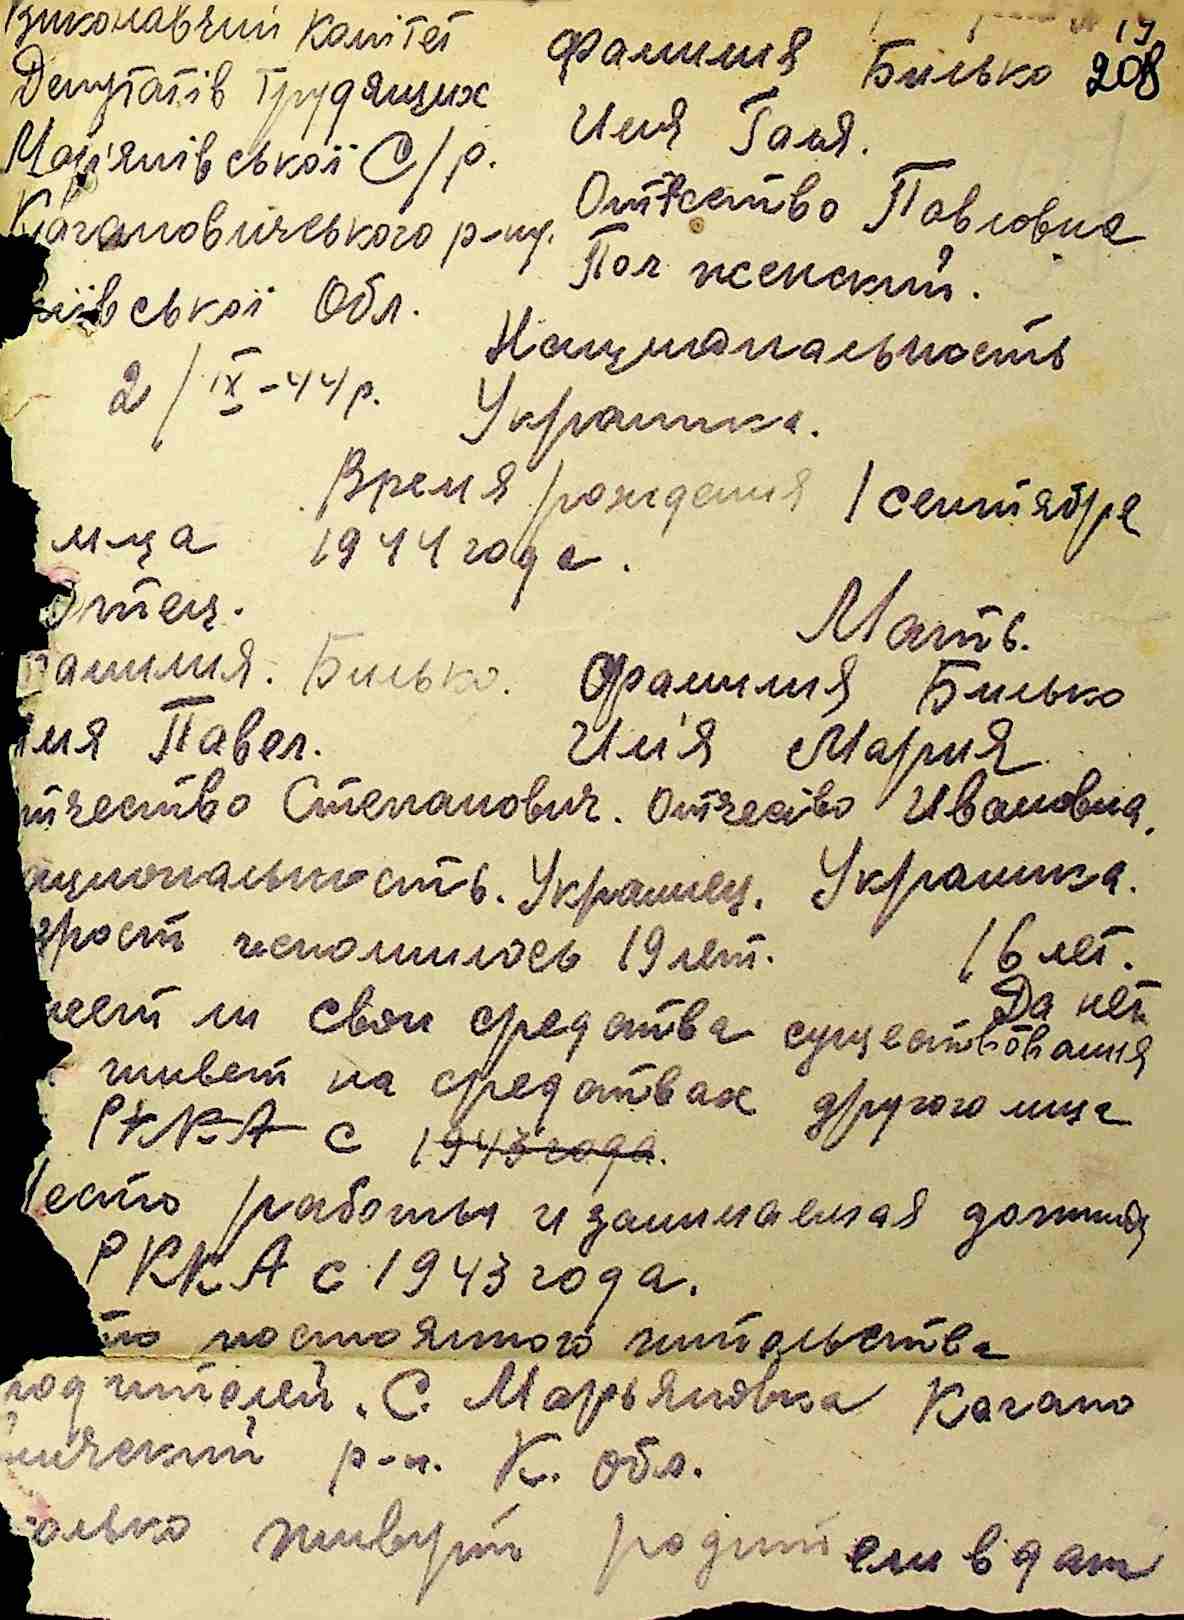 19
208
Виконавчий Комітет
Депутатів Трудящих
Мар'янівської С/р.
Кагановичського р-ну.
Київської Обл.
2/IX-44р.
Фамилия Билько
Имя Галя.
Отчество Павловна
Пол женский.
Национальность
Украинка.
Время рождения 1 сентября
1944 года.
мца
Отец.
Фамилия. Билько.
Имя Павел.
тчество Степанович.
ациональность. Украинец.
зраст исполнилось 19 лет.
Мать.
Фамилия Билько
Им'я Мария
Отчество Ивановна.
Украинка.
16 лет.
Да нет
меет ли свои средства существования
живет на средствах другого лица
РККА с 1943 года.
Место работы и занимаемая должность
РККА с 1943 года.
то постоянного жительства
родителей. С. Марьяновка Кагано
вический р-н. К. обл.
олько живут родители в дат